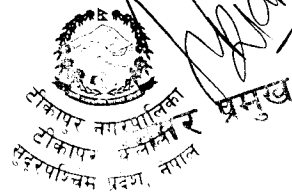 टीकापुर नगरपालिका
टीकापुर कैलाली
सुदूरपश्चिम प्रदेश, नेपाल
प्रमुख